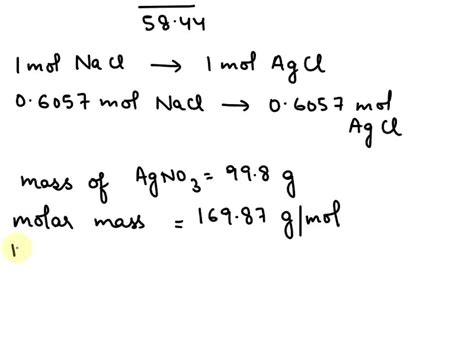 58.44
1 mol NaCl → 1 mol AgCl
0.6057 mol NaCl → 0.6057 mol
AgCl
mass of AgNO3 = 99.8 g
molar mass = 169.87 g/mol